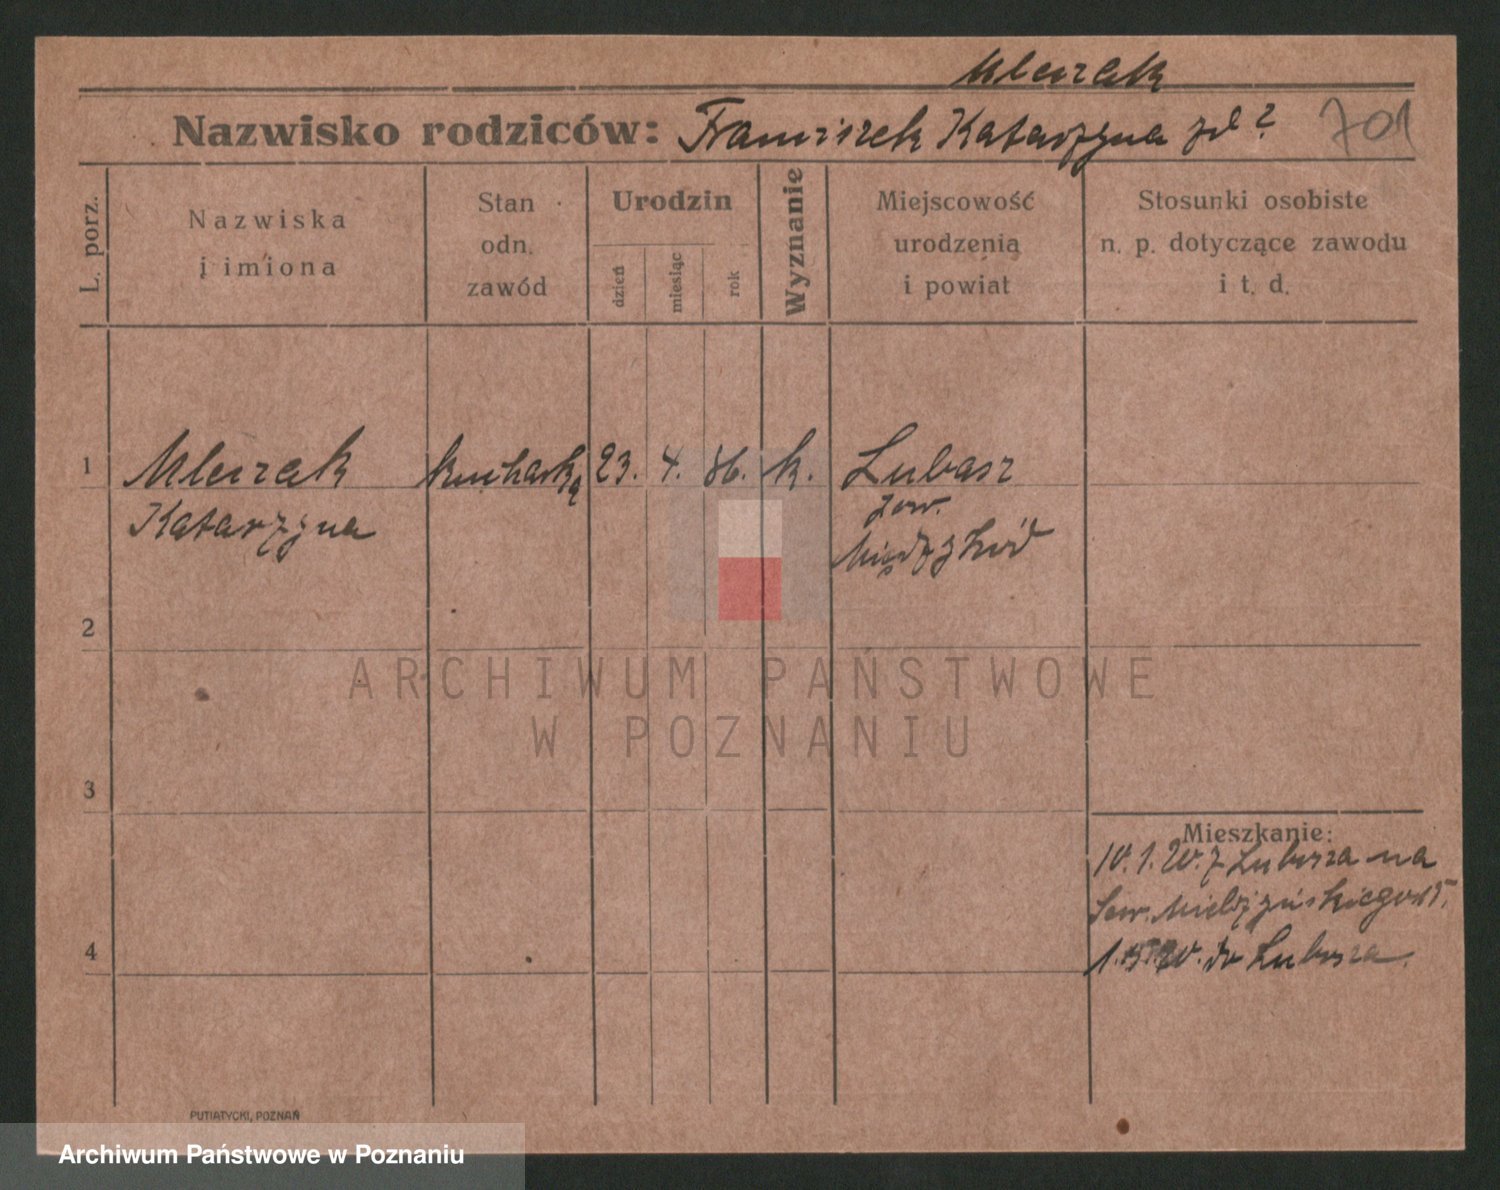 Mleczak
Nazwisko rodziców: Franciszek Katarzyna zd ? 701
L. porz.
Nazwiska
i imiona
Stan
odn.
zawód
Urodzin
dzień
miesiąc
rok
Wyznanie
Miejscowość
urodzenia
i powiat
Stosunki osobiste
n. p. dotyczące zawodu
i t. d.
1 Mleczak kucharka 23. 4. 86. k. Lubasz
Katarzyna
pow.
Międzychód
2
3
4
Mieszkanie:
10.1.20. z Lubosza na
Sew. Mielżyńskiego
20. do Lubosza.
PUTIATYCKI, POZNAŃ
ARCHIWUM PAŃSTWOWE
W POZNANIU
Archiwum Państwowe w Poznaniu